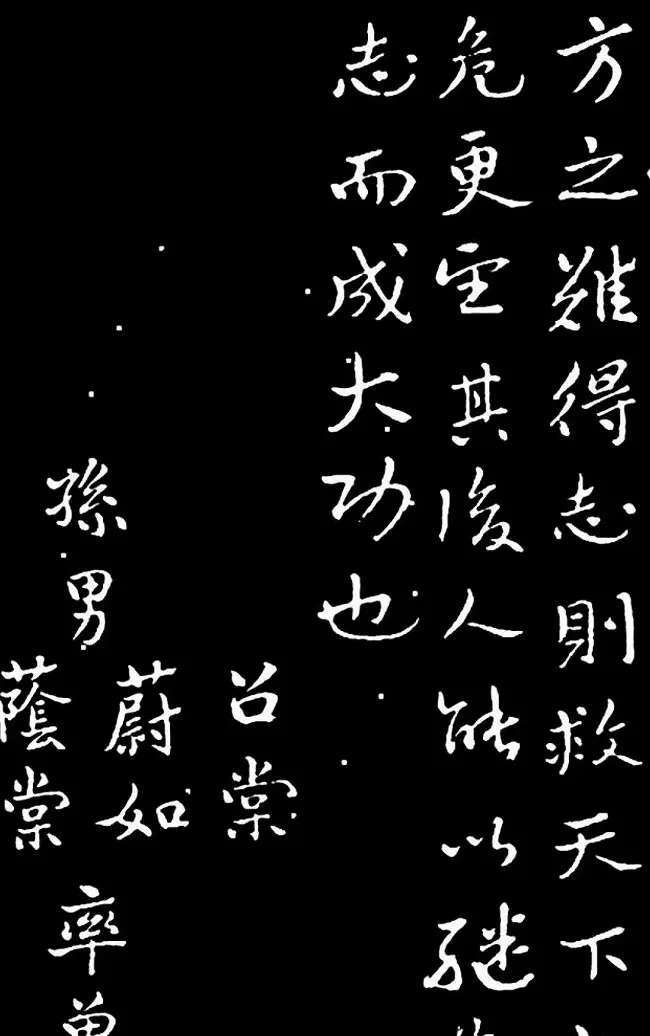 方之難得志則救天下
危更望其後人能以繼
志而成大功也
召棠
孫男蔚如率曾
蔭棠